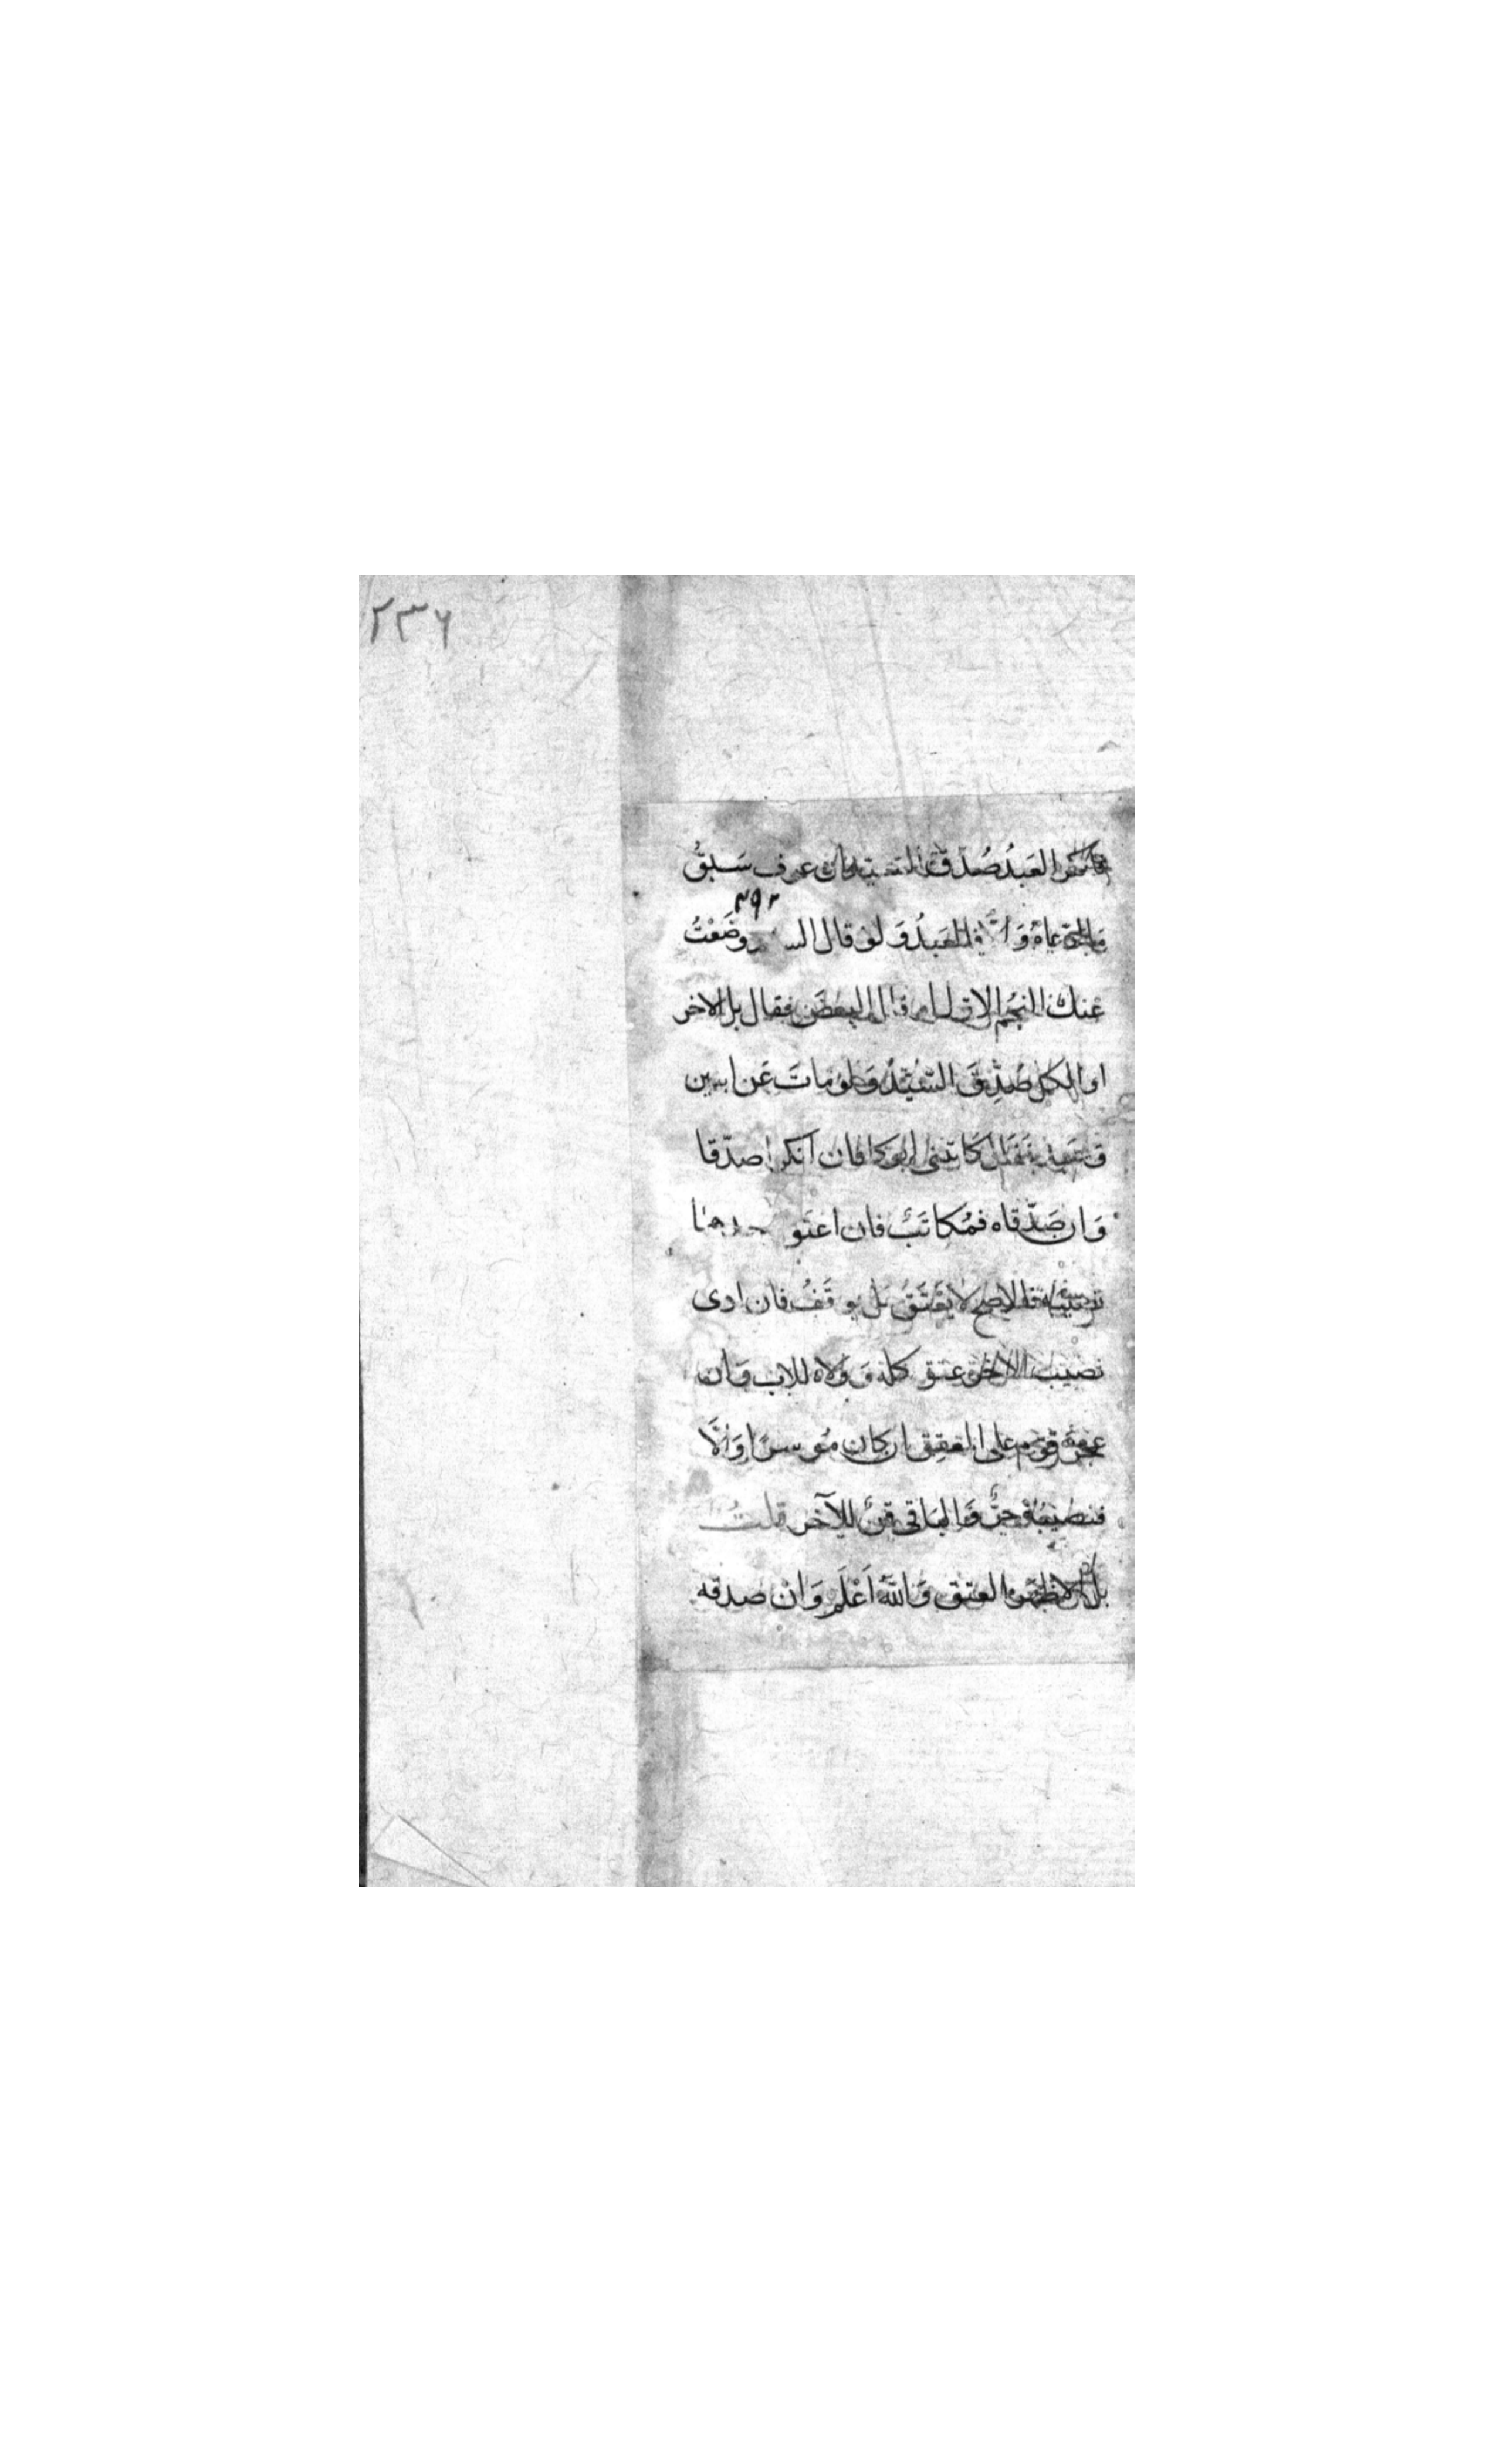 ٢٣٦
فانكر العبد صُدّق السيد وان عرف سَبقُ
٣٩٢
ما ادعاه وَالّا فالعَبدُ وَلو قال السيد وضَعْتُ
عنك النجم الاول او قال البعض فقال بل الاخر
او الكل صُدِّقَ السَّيّدُ وَلو مات عَن ابنين
وعبد فقال كاتبنى ابوكما فان انكرا صدّقا
وَان صَدّقاه فمُكاتَبٌ فان اعتق احدهما
نصيبه فالاصح لا يَعْتقُ بل يوقَفُ فان ادى
نصيب الاخر عتق كله وَوَلاه للاب وَان
عجز قوّم على المعتق ان كان مُوسرًا وَالّا
فنصيبه حرٌّ وَالباقى قنٌّ للآخر قلتُ
بل الاظهر العتق وَاللهُ اَعْلَم وَانْ صدقه